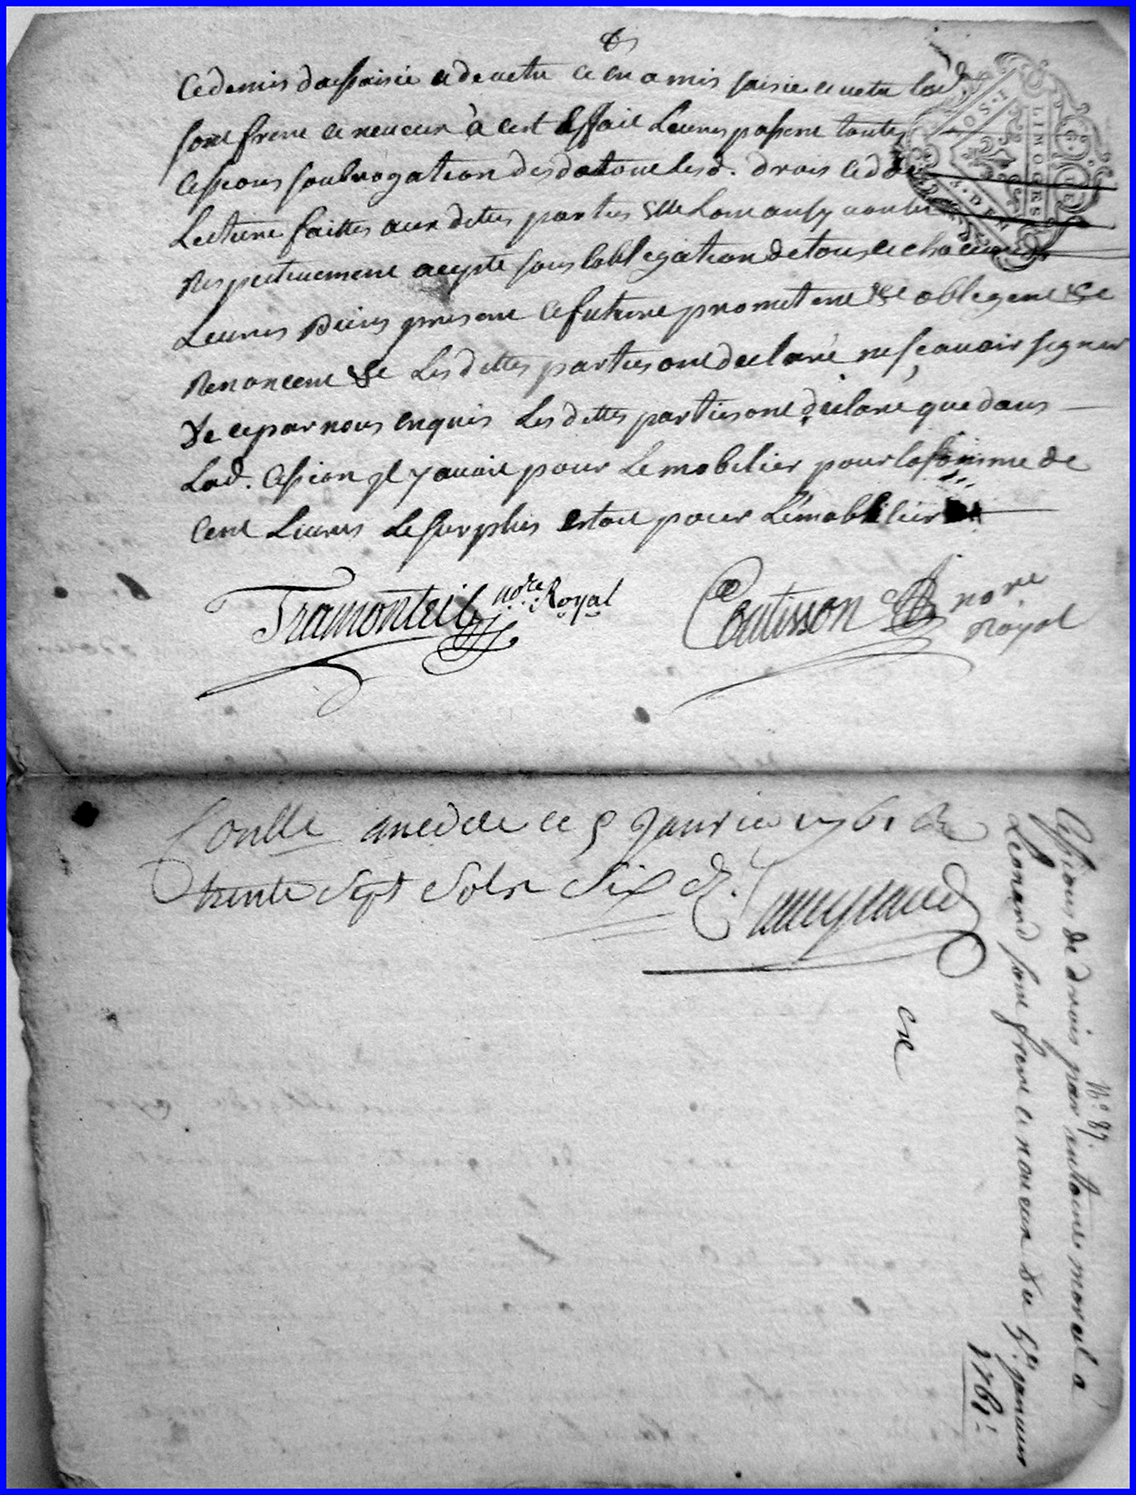 Cedemis dessaisie e devetu et en a mis saisie e vetu lad.
sont frere et neveux à cest Effait Leurs passent toutes
cessions soubrogation desd. tous lesd. drois ced
Lecture faittes aux dittes parties
Respectivement acepte sous lobligation de tous et chacuns
Leurs biens present e future prometent &e oblegent &e
Renoncent &e Lesdittes parties ont declaré ne sçavoir signer
De ce par nous enquis Lesdittes parties ont déclaré que dans
Lad. cession jl y avoit pour Le mobilier pour la somme de
Cent Livres Le surplus estoit pour L'émobilier
Tramonteil nore Royal
Coutisson nore
Royal
LIMOGES
Conlle a ce 5 Janvier 1761 R
trente sept sols six d.
cre
No 87.
Cessions de drois par antoine moreil a
Leonard sont frere et neveux Du 5e janvier
1761